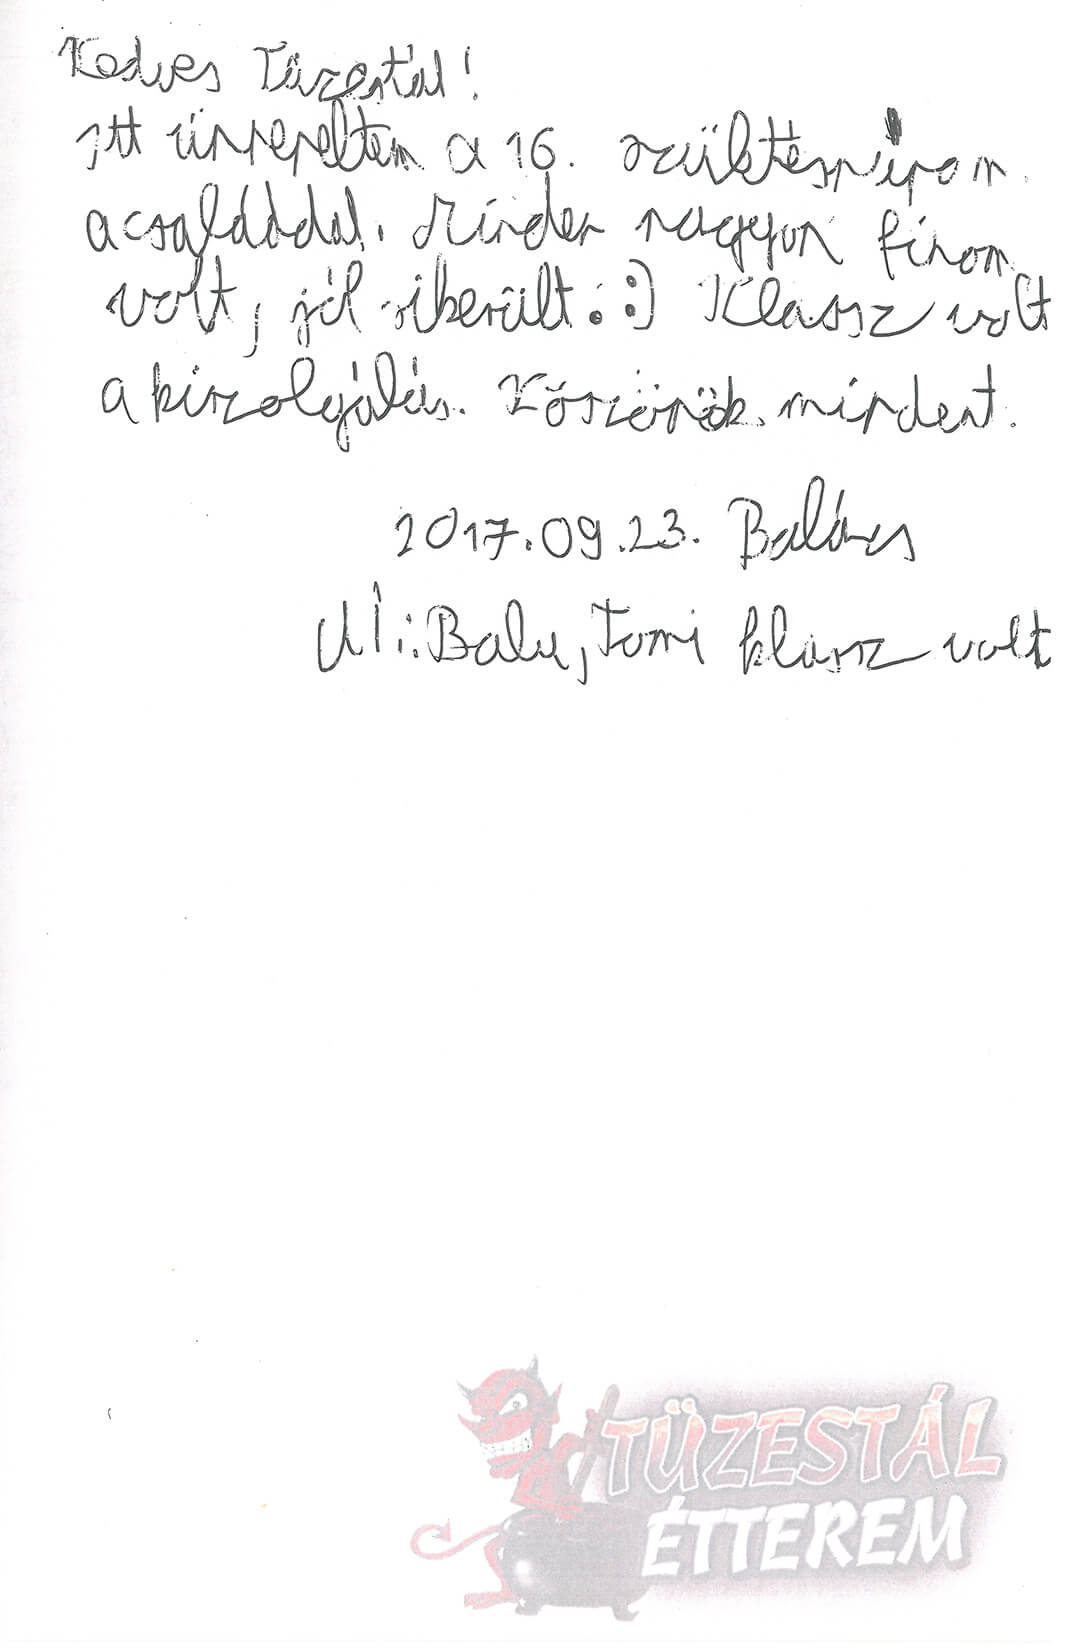 Kedves Tüzestál!
Itt ünnepeltem a 16. szültésnapom
a családdal. Minden nagyon finom
volt, jól sikerült. :) Klassz volt
a kiszolgálás. Köszönök mindent.
2017.09.23. Balázs
UI.: Balu, Tomi klassz volt
TÜZESTÁL
ÉTTEREM